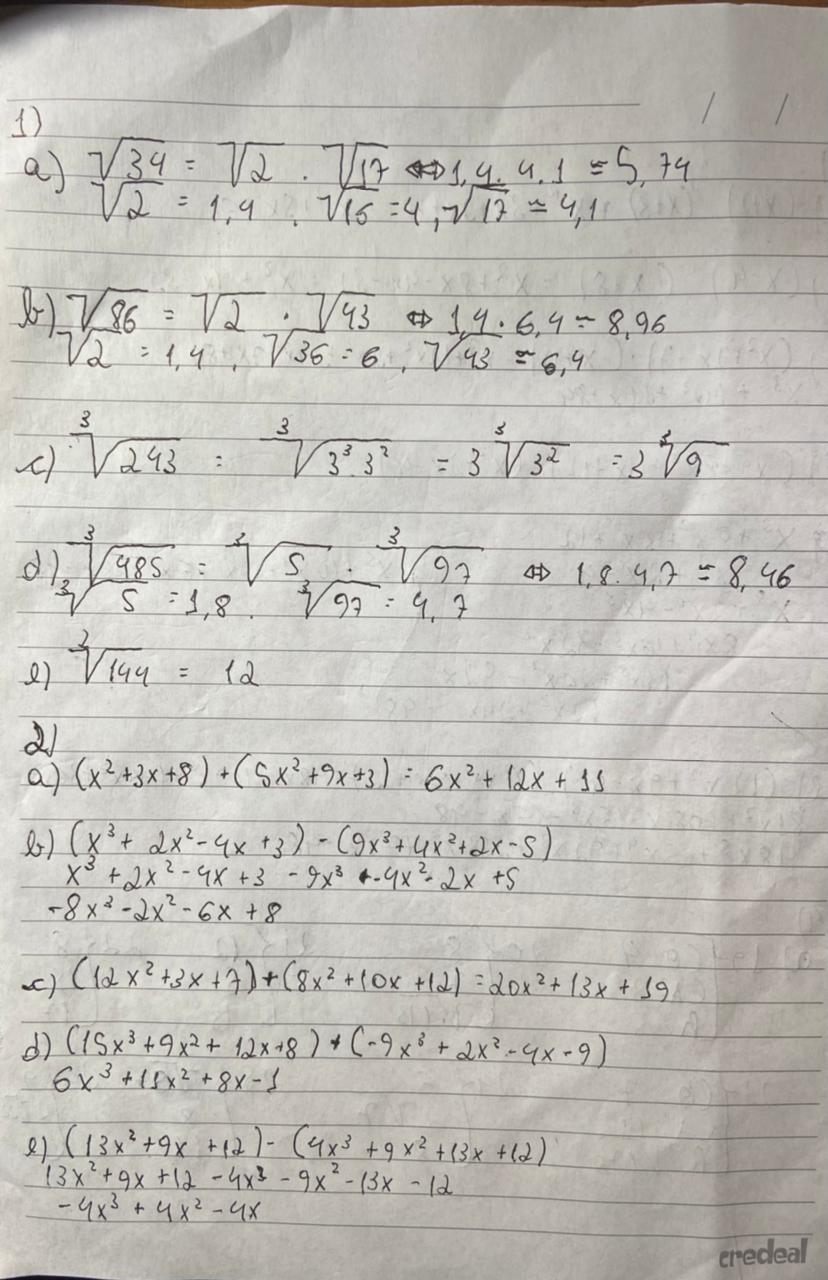 / /
1)
a) √34 = √2 . √17 ⇔ 1,4 . 4,1 ≈ 5,74
√2 = 1,4 . √16 = 4, √17 ≈ 4,1
b) √86 = √2 . √43 ⇔ 1,4 . 6,4 ≈ 8,96
√2 = 1,4 , √36 = 6 , √43 ≈ 6,4
c) ³√243 = ³√3³ 3² = 3 ³√3² = 3 ³√9
d) ³√485 = ³√5 . ³√97 ⇔ 1,8 . 4,7 ≈ 8,46
³√5 = 1,8 . ³√97 = 4,7
e) ²√144 = 12
2)
a) (x²+3x+8)+(5x²+9x+3) = 6x²+12x+11
b) (x³+2x²-4x+3)-(9x³+4x²+2x-5)
x³+2x²-4x+3-9x³-4x²-2x+5
-8x³-2x²-6x+8
c) (12x²+3x+7)+(8x²+10x+12) = 20x²+13x+19
d) (15x³+9x²+12x+8)+(-9x³+2x²-4x-9)
6x³+11x²+8x-1
e) (13x²+9x+12)-(4x³+9x²+13x+12)
13x²+9x+12-4x³-9x²-13x-12
-4x³+4x²-4x
credeal